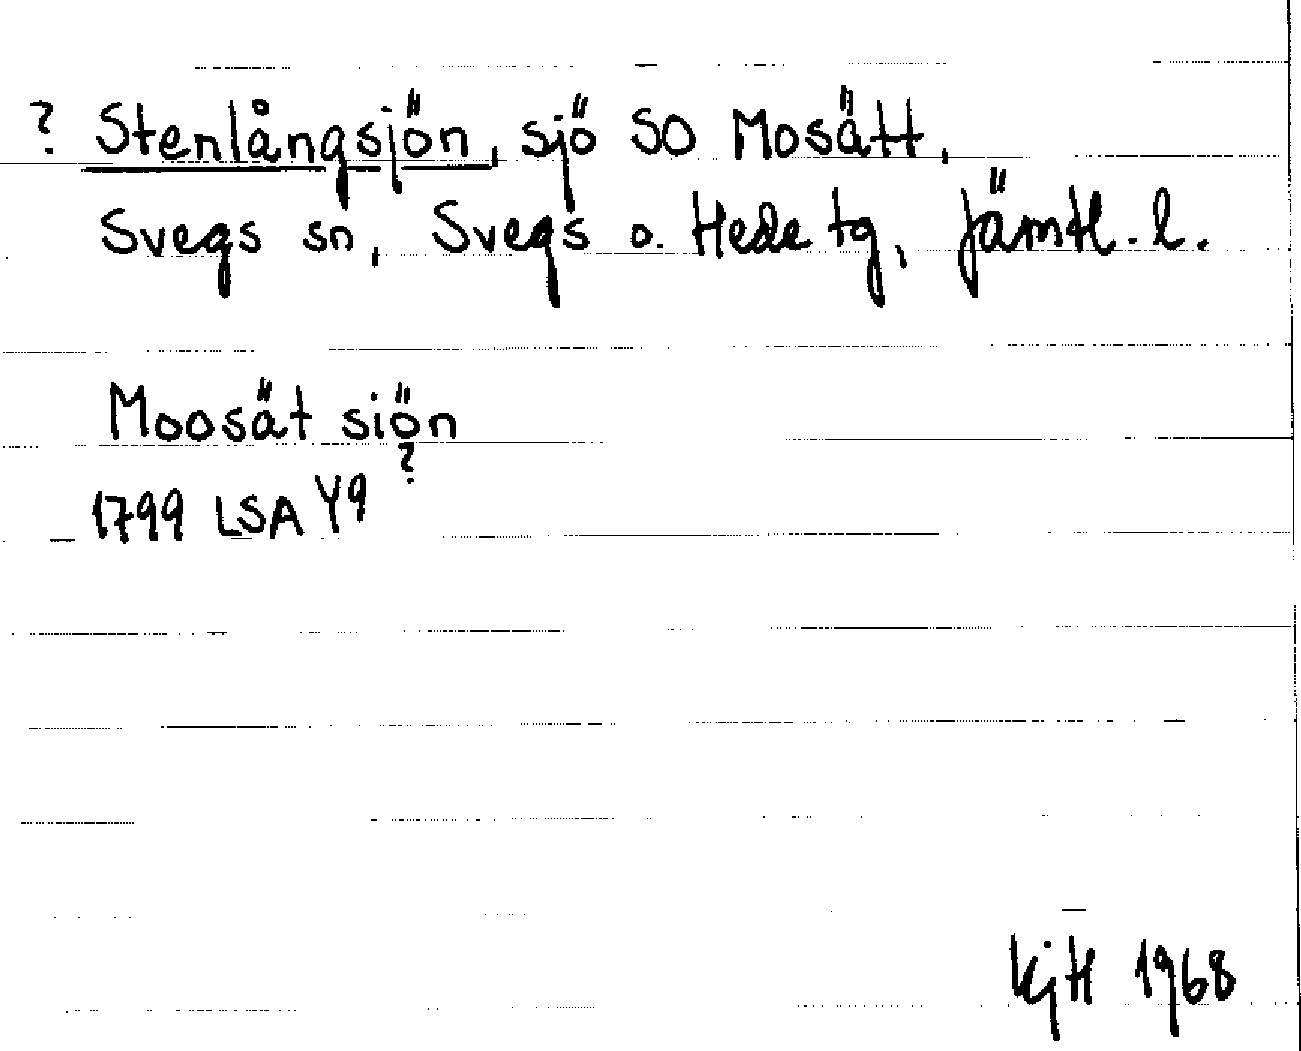 ? Stenlångsjön, sjö SO Mosätt,
Svegs sn, Svegs o. Hede tg, Jämtl. l.
Moosät siön
?
1799 LSA Y9
KjH 1968